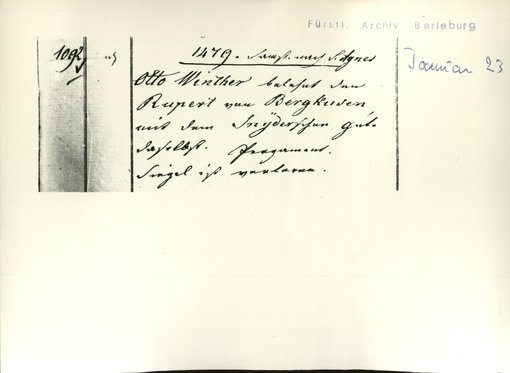 Fürstl. Archiv Berleburg
1092
1479. Samst. nach S. Agnes
Januar 23
Otto Winther belehnt den
Rupert von Bergkusen
mit dem Snÿderschen Gute
daselbst. Pergament.
Siegel ist verloren.